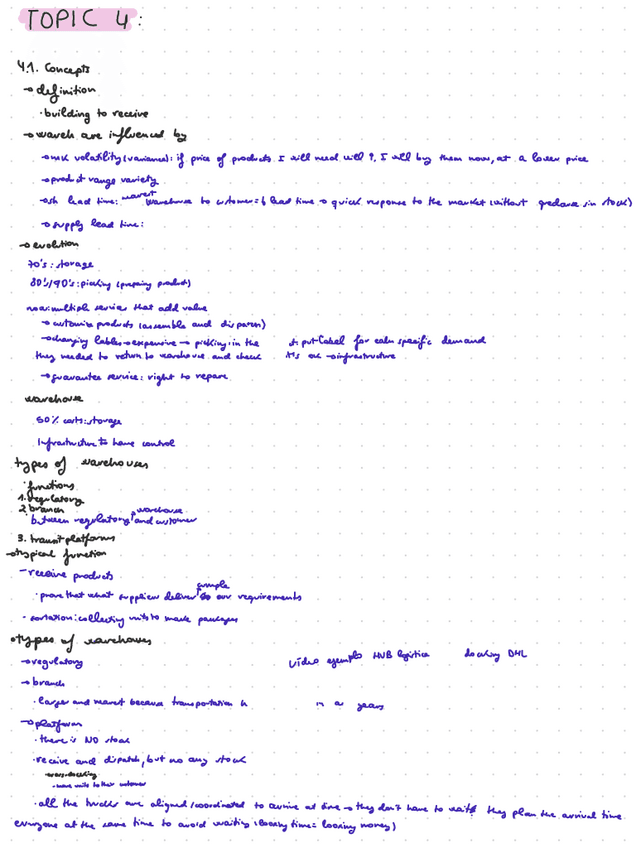 TOPIC 4:
4.1. Concepts
→ definition
· building to receive
→ wareh are influenced by
→ risk volatility (variance): if price of products I will need will ↑, I will buy them now, at a lower price
→ product range variety
lead time: nearest warehouse to customer = ↓ lead time → quick response to the market (without in stock)
→ supply lead time:
→ evolution
70's: storage
80's/90's: picking (preparing product)
now: multiple services that add value
→ customize products (assemble and dispatch)
→ changing lables → expensive → picking: in the put label for each specific demand
they needed to return to warehouse and check it's ok → infrastructure
→ guarantee service: right to repare
warehouse
50% costs: storage
Infrastructure to have control
types of warehouses
· functions
1. regulatory
2. branch
· between regulatory warehouse and customer
3. transit platforms
→ typical function
- receive products
· prove that what suppliers deliver comple to our requirements
- sortation: collecting units to make packages
• types of warehouses
→ regulatory video ejemplo HUB logistica docking DHL
→ branch
· larger and nearest because transportation in years
→ platform
· there is NO stock
· receive and dispatch, but no any stock
cross-docking
· move units to their customer
· all the trucks are aligned/coordinated to arrive at time → they don't have to wait, they plan the arrival time
everyone at the same time to avoid waiting (loosing time = loosing money)